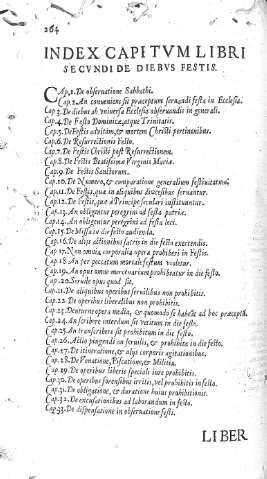 264
INDEX CAPITVM LIBRI
SECVNDI DE DIEBVS FESTIS.
CAp.1. De obseruatione Sabbathi.
Cap.2. An conueniens sit præceptum seruandi festa in Ecclesia.
Cap.3. De diebus ab vniuersa Ecclesia obseruandis in generali.
Cap.4. De Festo Dominicæ, atque Trinitatis.
Cap.5. De Festis ad vitam, & mortem Christi pertinentibus.
Cap.6. De Resurrectionis Festo.
Cap.7. De Festis Christi post Resurrectionem.
Cap.8. De Festis Beatissimæ Virginis Mariæ.
Cap.9. De Festis Sanctorum.
Cap.10. De Numero, & comparatione generalium festiuitatum.
Cap.11. De Festis, quæ in aliquibus diœcesibus seruantur.
Cap.12. De Festis, quæ a Principe seculari instituuntur.
Cap.13. An obligentur peregrini ad festa patriæ.
Cap.14. An obligentur peregrini ad festa loci.
Cap.15. De Missa in die festo audienda.
Cap.16. De alijs actionibus sacris in die festo exercendis.
Cap.17. Non omnia corporalia opera prohiberi in Festis.
Cap.18. An per peccatum mortale festum violetur.
Cap.19. An opus omne mercenarium prohibeatur in die festo.
Cap.20. Seruile opus quod sit.
Cap.21. De aliquibus operibus seruilibus non prohibitis.
Cap.22. De operibus liberalibus non prohibitis.
Cap.23. De cuturne opera media, & quomodo se habeat ad hoc præceptũ.
Cap.24. An scribere interdum sit vetitum in die festo.
Cap.25. An transcribere sit prohibitum in die festo.
Cap.26. Actio pingendi an seruilis, & prohibita in die festo.
Cap.27. De itineratione, & alijs corporis agitationibus.
Cap.28. De Venatione, Piscatione, & Militia.
Cap.29. De operibus liberis speciali iure prohibitis.
Cap.30. De operibus forensibus irritis, vel prohibitis in festo.
Cap.31. De obligatione, & duratione huius prohibitionis.
Cap.32. De excusationibus ad laborandum in festo.
Cap.33. De dispensatione in obseruatione festi.
LIBER